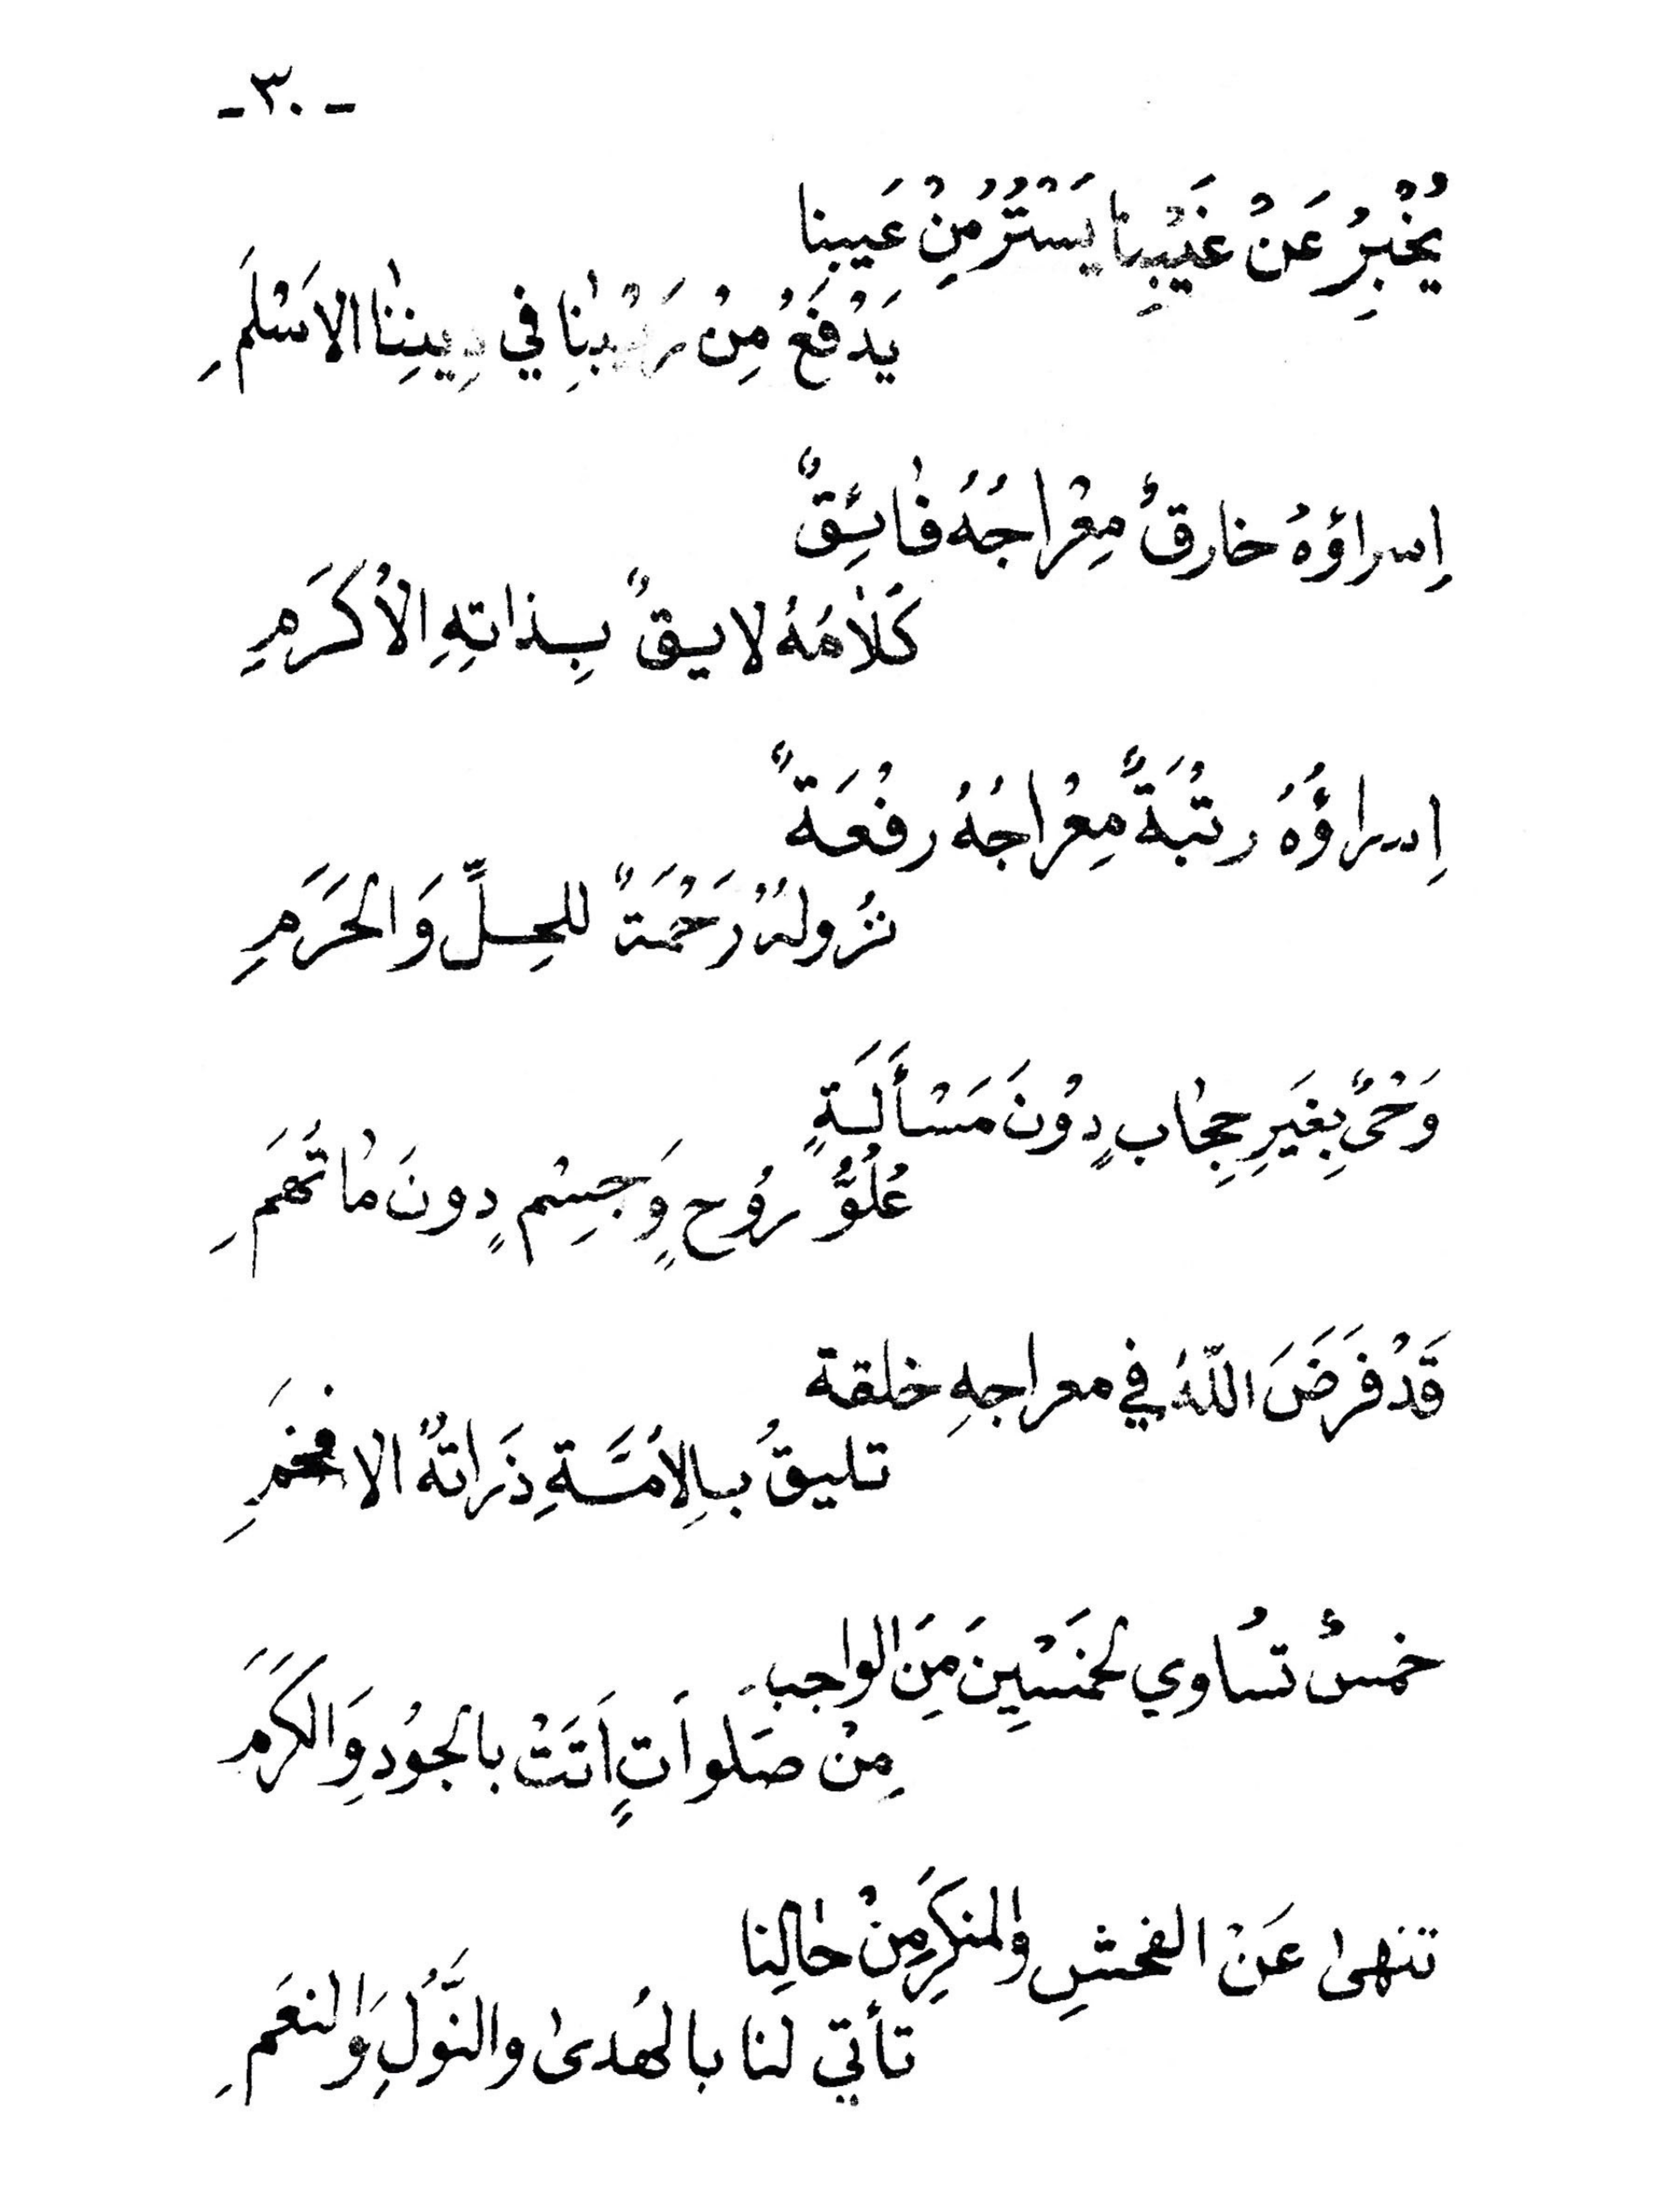 - ٣٠ -
يُخْبِرُ عَنْ غَيْبِنا يَسْتُرُ مِنْ عَيبِنا
يَدْفَعُ مِنْ رَيْبِنا في دِينِنا الاَسْلَمِ
اِسراؤهُ خارقٌ مِعْراجُهُ فائِقٌ
كَلامُهُ لايقٌ بِذاتِهِ الاُكرَمِ
اِسراؤُهُ رتْبَةٌ مِعْراجُهُ رفْعَةٌ
نُزولهُ رَحْمَةٌ للحِلِّ وَالحَرَمِ
وَحْىٌ بِغَيرِ حِجابٍ دُونَ مَسْأَلَةٍ
عُلُوُّ رُوحٍ وَجِسْمٍ دونَ ماتُهَمِ
قَدْ فَرَضَ اللّهُ في معراجهِ خلقة
تليقُ بالِاُمَّةِ ذَراتهُ الافخَمِ
خمسٌ تسُاوي لخمَسْيِنَ مِنَ الواجبِ
مِنْ صَلَواَتٍ اَتَتْ بالجوُدِ وَالكَرَمَ
تنهىٰ عَنْ الفحشِ والمنكَرِ مِنْ حالِنا
تأتي لنا بالهُدىٰ والنَّوَلِ وَالنعَمِ